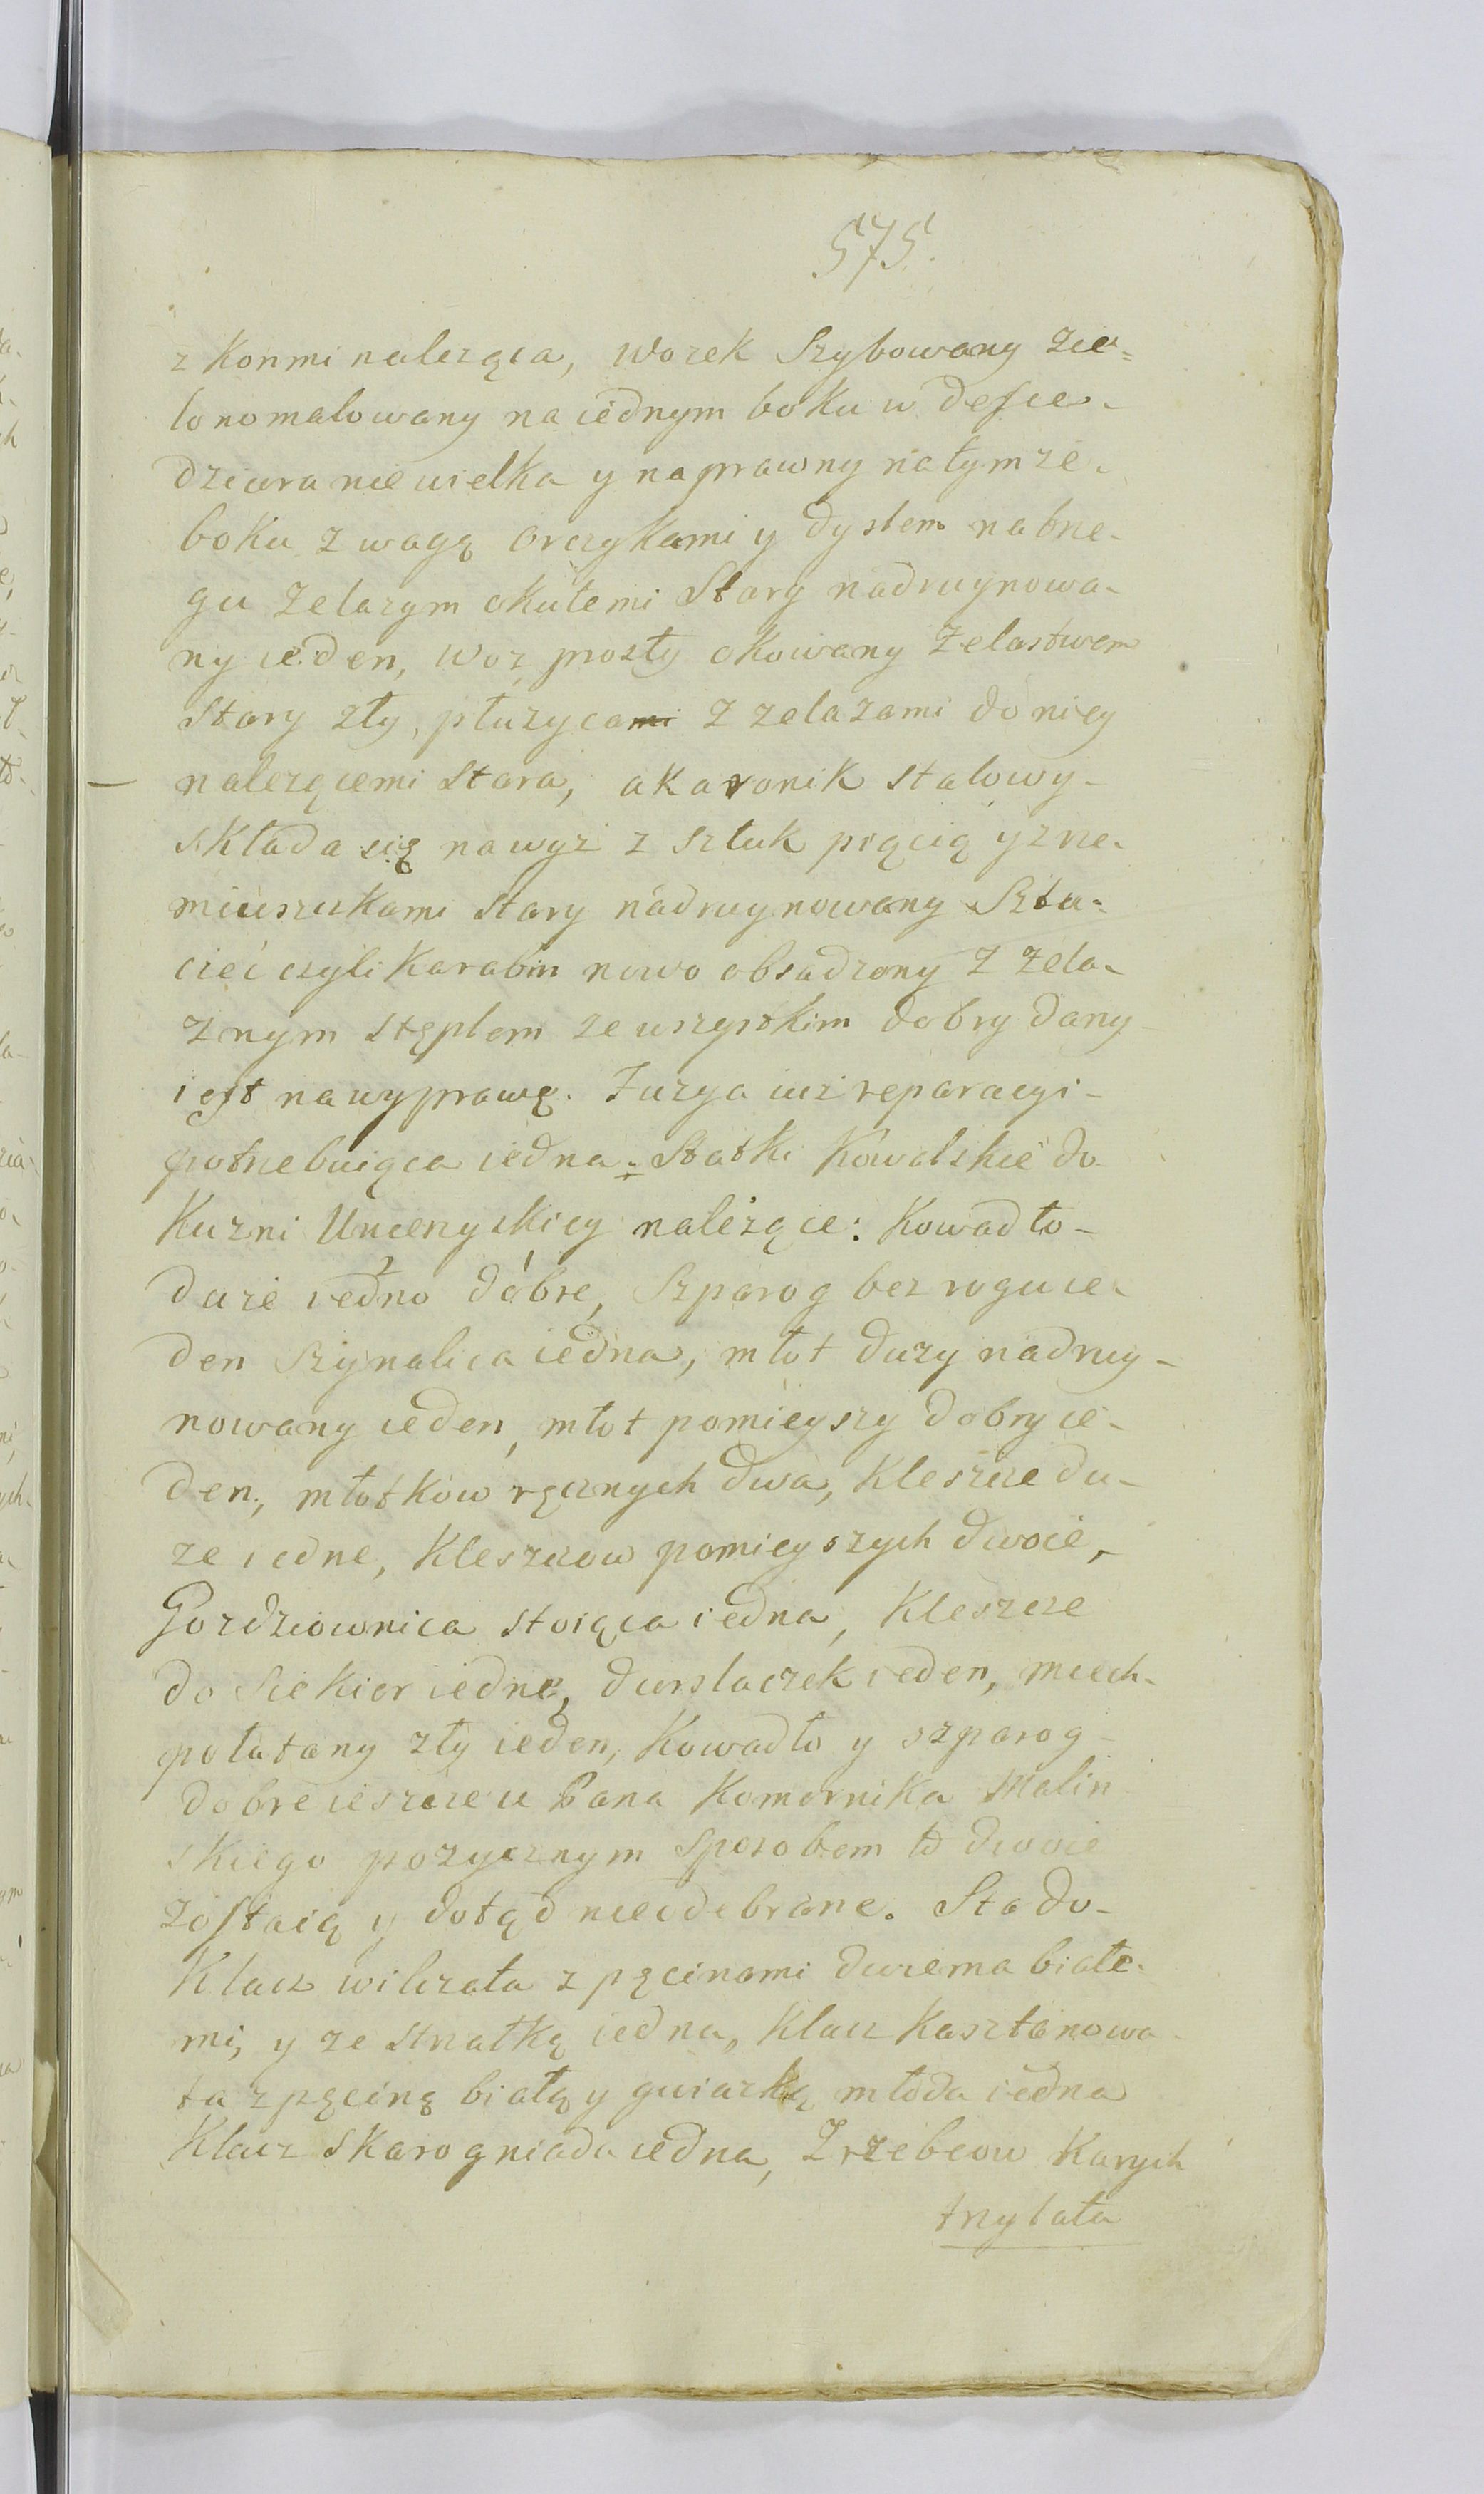 575.
z Konmi naleząca, Wozek Szybowany zie=
lono malowany na iednym boku w desce-
dziura nie wielka y naprawny na tymże-
boku z wagą orczykami y dyslem na brze-
gu Zelazym okutemi Stary nadruynowa-
ny ieden, Woz prosty okowany Zelastwem
Stary zły, płużyca z zelazami do niey
nalezącemi Stara, a karonik stalowy-
składa się nawyż z sztuk piącią y rze-
mieuszkami Stary nadruynowany Sztu=
ciec czyli Karabin nowo obsadzony z zela-
znym stęplem ze wszystkim dobry dany
iest na wyprawę. Fuzya iuż reparacyi-
potrzebuiąca iedna: Statki Kowalskie do
Kuzni Uncenyskiey należące: Kowadło-
duże iedno dobre, Szparog bez rogu ie-
den Szynalica iedna, młot duzy nadruy-
nowany ieden, młot pomieyszy dobry ie-
den, młotkow ręcznych dwa, Kleszcze du-
ze iedne, Kleszczow pomieyszych dwoie,
Gozdziownica stoiąca iedna, Kleszcze
do Siekier iedne, durslaczek ieden, miech-
połatany zły ieden, Kowadło y szparog-
dobre ieszcze u Pana Komornika Malin
skiego pozycznym sposobem to dwoie
zostaią y dotąd nieodebrane. Stado-
Klacz wilczata z pęcinami dwiema białe-
mi, y ze strzałką iedna, Klacz Kasztanowa-
ta z pęciną białą y gwiazką młoda iedna
Klacz Skarogniada iedna, Zrzebcow Karych
trzylata